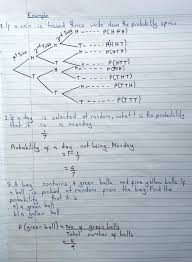 Example
1. If a coin is tossed thrice write down the probability space
1st Toss 2nd Toss 3rd Toss H ---- P(HHH)
H
H T ---- P(HHT)
T H ---- P(HTH)
T ---- P(HTT)
H ---- P(THH)
T H T ---- P(THT)
T H ---- P(TTH)
T ---- P(TTT)
2. If a day is selected at random, what is the probability
that it is a Monday.
1/7
Probability of a day not being Monday
= 1 - 1/7
= 6/7
3. A bag contains 4 green balls and five yellow balls if
a ball is picked at random from the bag. Find the
probability that it is
a) a green ball
b) a yellow ball
P(green ball) = No of green balls
Total number of balls
=